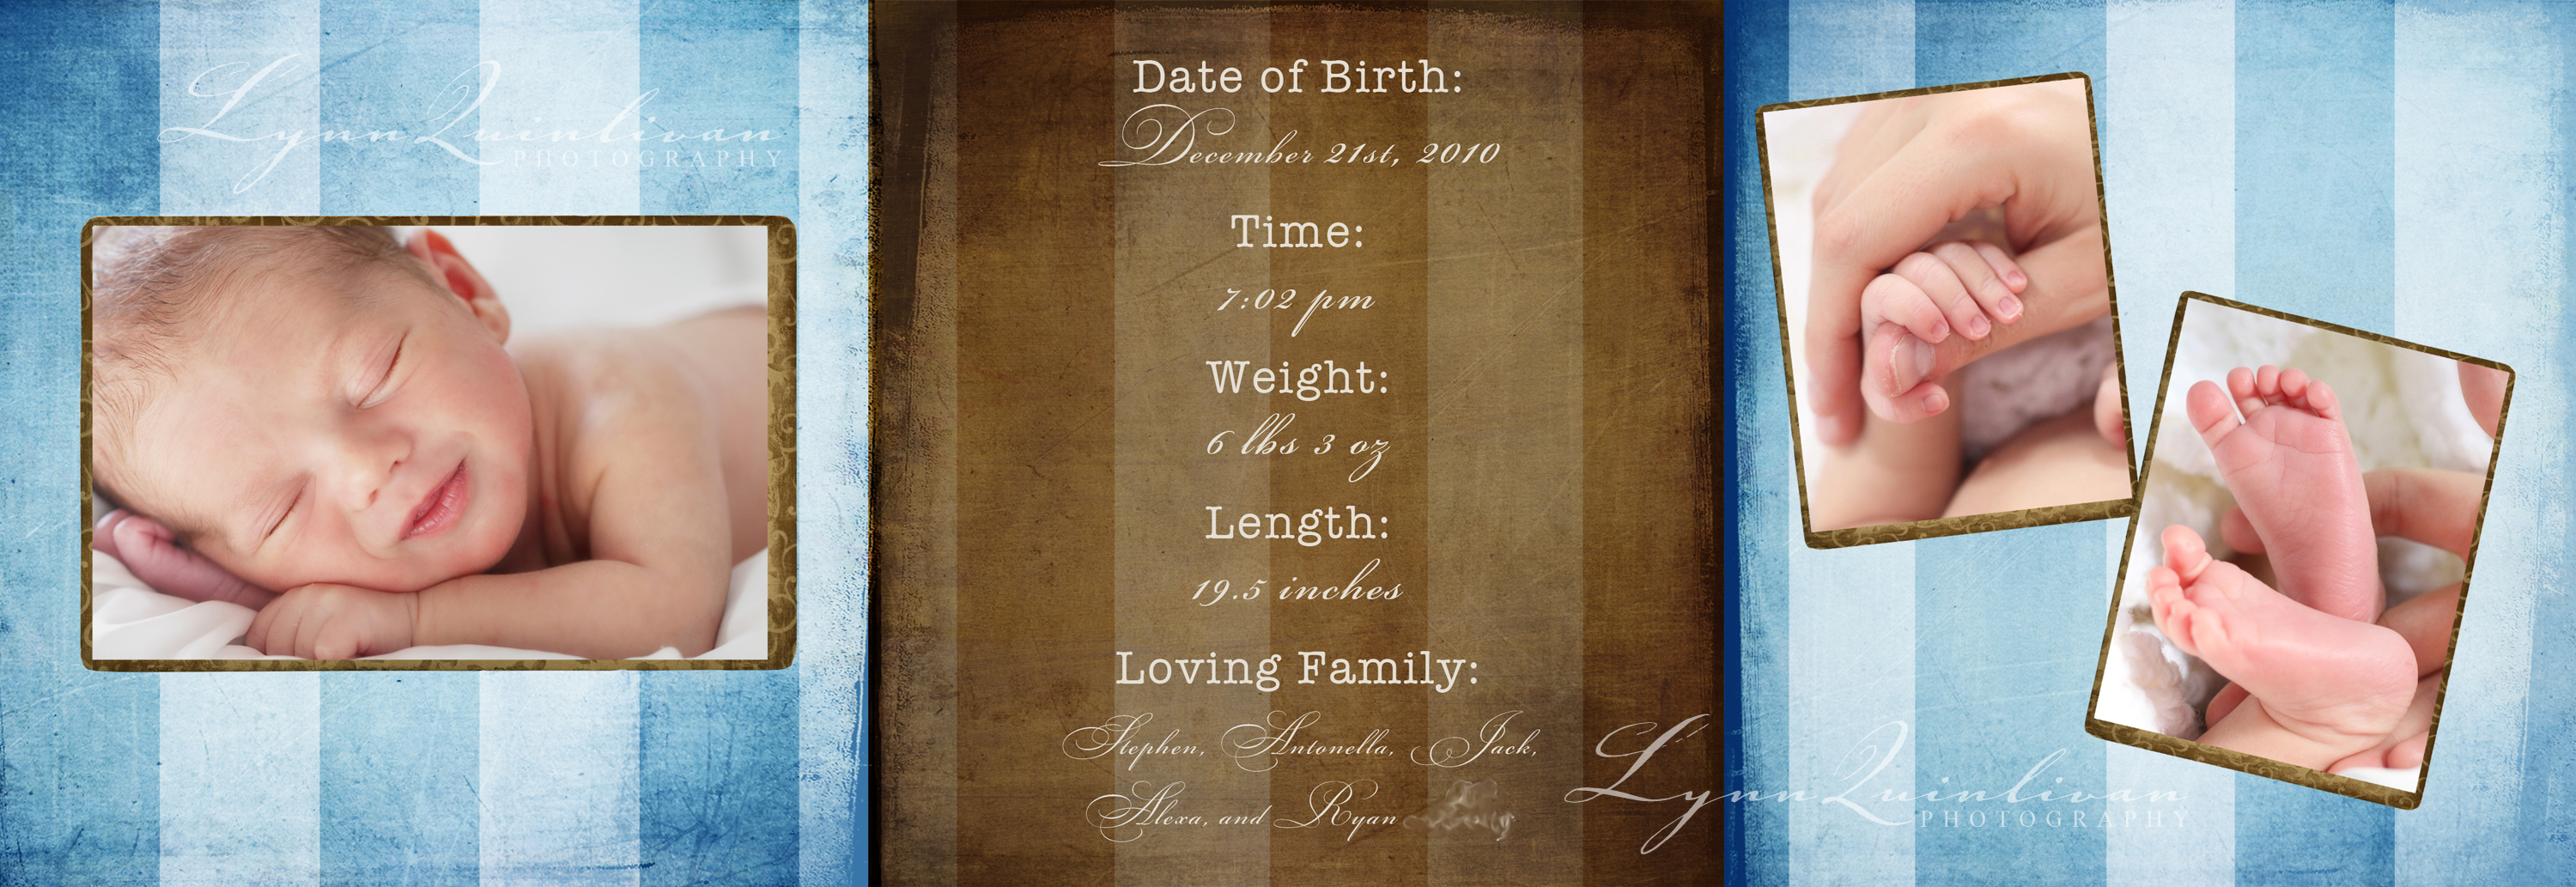 Lynn Quinlivan
PHOTOGRAPHY
Date of Birth:
December 21st, 2010
Time:
7:02 pm
Weight:
6 lbs 3 oz
Length:
19.5 inches
Loving Family:
Stephen, Antonella, Jack,
Alexa, and Ryan
Lynn Quinlivan
PHOTOGRAPHY